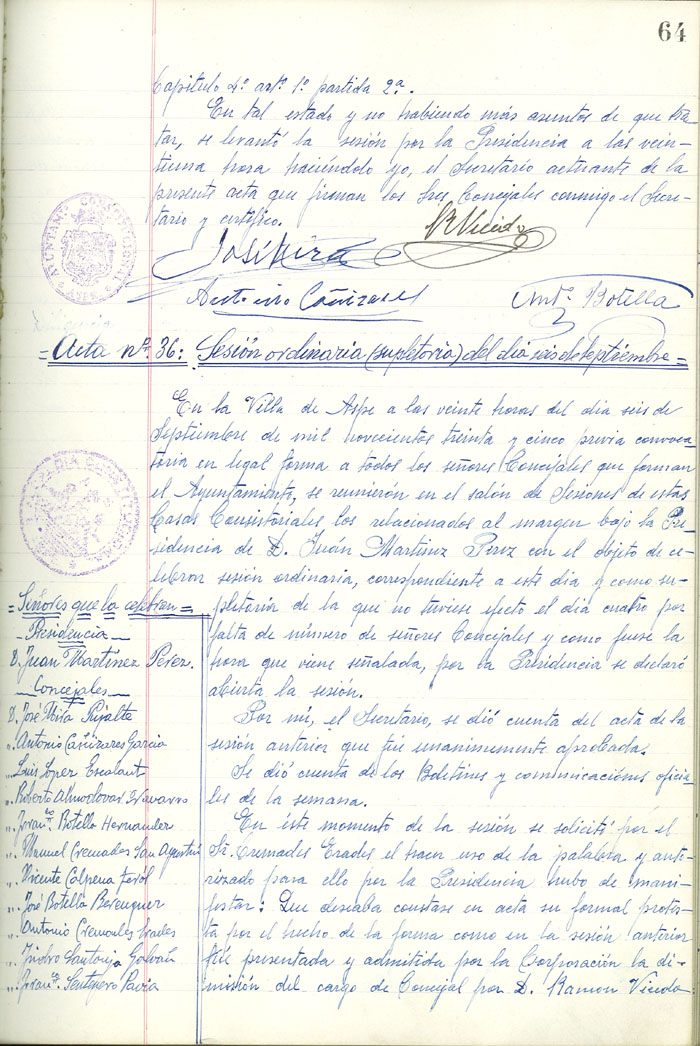 64
Capitulo 4º artº 1º partida 2ª.
En tal estado y no habiendo más asuntos de que tra-
tar, se levantó la sesión por la Presidencia a las vein-
tiuna hora haciéndolo yo, el Secretario actuante de la
presente acta que firman los Sres Concejales conmigo el Secre-
tario y certifico.
R Vicedo
José Mira
Antonio Cañizares
Antº Botella
=Acta nº 36: Sesión ordinaria (supletoria) del dia seis de septiembre=
En la Villa de Aspe a las veinte horas del dia seis de
Septiembre de mil novecientos treinta y cinco previa convoca-
toria en legal forma a todos los señores Concejales que forman
el Ayuntamiento, se reunierón en el salón de Sesiones de estas
Casas Consistoriales los relacionados al margen bajo la Pre-
sidencia de D. Juán Martinez Perez con el objeto de ce-
lebrar sesión ordinaria, correspondiente a este dia y como su-
pletoria de la que no tuviese efecto el dia cuatro por
falta de número de señores Concejales y como fuese la
hora que viene señalada, por la Presidencia se declaró
abierta la sesión.
Por mi, el Secretario, se dió cuenta del acta de la
sesión anterior que fué unanimemente aprobada.
Se dió cuenta de los Boletines y comunicaciónes oficia-
les de la semana.
En éste momento de la sesión se solicitó por el
Sr. Cremades Erades el hacer uso de la palabra y auto-
rizado para ello por la Presidencia hubo de mani-
festar: Que deseaba constase en acta su formal protes-
ta por el hecho de la forma como en la sesión anterior
fué presentada y admitida por la Corporación la di-
misión del cargo de Concejal por D. Ramon Vicedo
=Señores que la celebran=
Presidencia
D. Juan Martinez Pérez.
Concejales
D. José Mira Pujalte
". Antonio Cañizares Garcia
". Luis López Escolant
". Roberto Almodovar Navarro
". Franco. Botella Hernandez
". Manuel Cremades San Agustin
". Vicente Calpena
". José Botella Berenguer
". Antonio Cremades Erades
". Isidro Santonja Galvañ
". Franco. Sempere Pavia